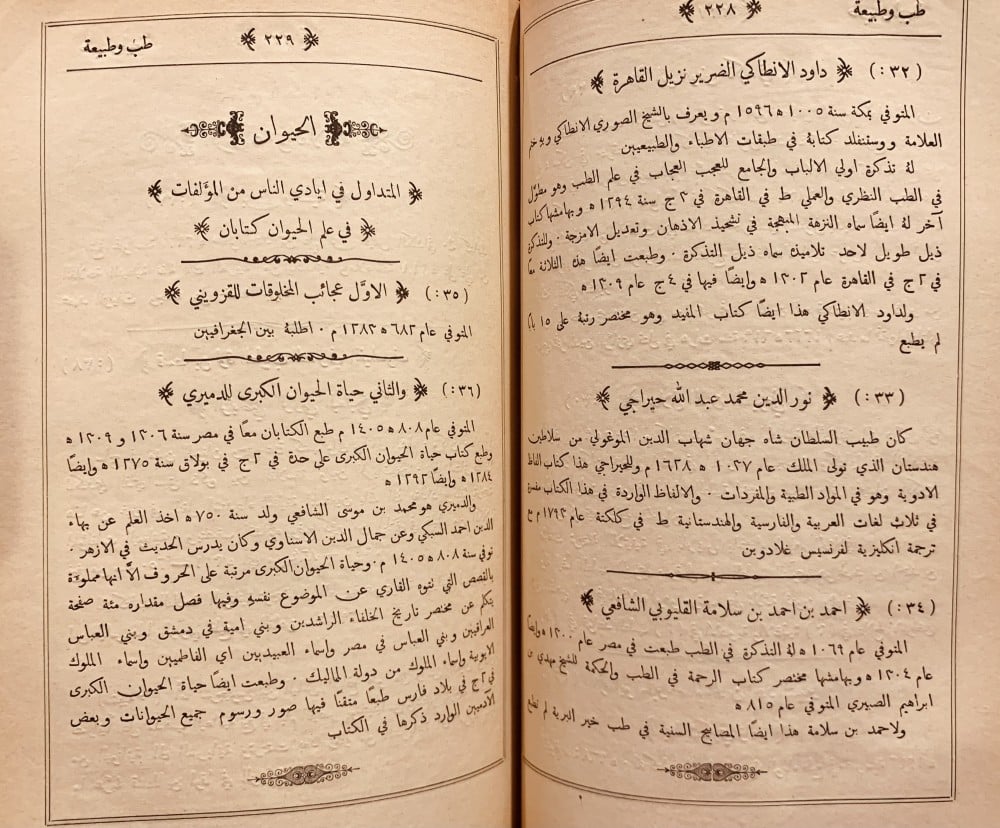 طب وطبيعة
٢٢٨
(٣٢ :) داود الانطاكي الضرير نزيل القاهرة
المتوفي بمكة سنة ١٠٠٥ ه ١٥٩٦ م ويعرف بالشيخ الصوري الانطاكي وبه ختم
العلامة ووستنفلد كتابهُ في طبقات الاطباء والطبيعيين
لهُ تذكرة اولي الالباب والجامع للعجب العجاب في علم الطب وهو مطوَّل
في الطب النظري والعملي ط في القاهرة في ٢ ج سنة ١٢٩٤ ه وبهامشها كتاب
آخر لهُ ايضًا سماه النزهة المبهجة في تشحيذ الاذهان وتعديل الامزجة ٠ وللتذكرة
ذيل طويل لاحد تلاميذه سماه ذيل التذكرة ٠ وطبعت ايضًا هذه الثلاثة معًا
في ٢ ج في القاهرة عام ١٣٠٢ ه وايضًا فيها في ٤ ج عام ١٣٠٩ ه
ولداود الانطاكي هذا ايضًا كتاب المفيد وهو مختصر رتبهُ على ١٥ بابًا
لم يطبع
(٣٣ :) نور الدين محمد عبد الله حيراجي
كان طبيب السلطان شاه جهان شهاب الدين الموغولي من سلاطين
هندستان الذي تولى الملك عام ١٠٣٧ ه ١٦٢٨ م وللحيراجي هذا كتاب الفاظ
الادوية وهو في المواد الطبية والمفردات ٠ والالفاظ الواردة في هذا الكتاب مفسرة
في ثلاث لغات العربية والفارسية والهندستانية ط في كلكتة عام ١٧٩٣ م مع
ترجمة انكليزية لفرنسيس غلادوين
(٣٤ :) احمد بن احمد بن سلامة القليوبي الشافعي
المتوفي عام ١٠٦٩ ه لهُ التذكرة في الطب طبعت في مصر عام ١٣٠٠ ه وايضًا
عام ١٣٠٤ ه وبهامشها مختصر كتاب الرحمة في الطب والحكمة للشيخ مهدي بن
ابراهيم الصبيري المتوفي عام ٨١٥ ه
ولاحمد بن سلامة هذا ايضًا المصابيح السنية في طب خير البرية لم تطبع
طب وطبيعة
٢٢٩
الحيوان
المتداول في ايادي الناس من المؤلفات
في علم الحيوان كتابان
(٣٥ :) الاوَّل عجائب المخلوقات للقزويني
المتوفي عام ٦٨٢ ه ١٢٨٣ م ٠ اطلبهُ بين الجغرافيين
(٣٦ :) والثاني حياة الحيوان الكبرى للدميري
المتوفي عام ٨٠٨ ه ١٤٠٥ م طبع الكتابان معًا في مصر سنة ١٣٠٦ و ١٣٠٩ ه
وطبع كتاب حياة الحيوان الكبرى على حدة في ٢ ج في بولاق سنة ١٢٧٥ ه وايضًا
١٢٨٤ ه وايضًا ١٢٩٢ ه
والدميري هو محمد بن موسى الشافعي ولد سنة ٧٥٠ ه اخذ العلم عن بهاء
الدين احمد السبكي وعن جمال الدين الاسناوي وكان يدرس الحديث في الازهر ٠
توفي سنة ٨٠٨ ه ١٤٠٥ م ٠ وحياة الحيوان الكبرى مرتبة على الحروف الاَّ انها مملوءة
بالقصص التي تتوه القاري عن الموضوع نفسهِ وفيها فصل مقداره مئة صفحة
يتكلم عن مختصر تاريخ الخلفاء الراشدين وبني امية في دمشق وبني العباس
العراقيين وبني العباس في مصر واسماء العبيديين اي الفاطميين واسماء الملوك
الايوبية واسماء الملوك من دولة المماليك ٠ وطبعت ايضًا حياة الحيوان الكبرى
في ٢ ج في بلاد فارس طبعًا متقنًا فيها صور ورسوم جميع الحيوانات وبعض
الآدميين الوارد ذكرها في الكتاب